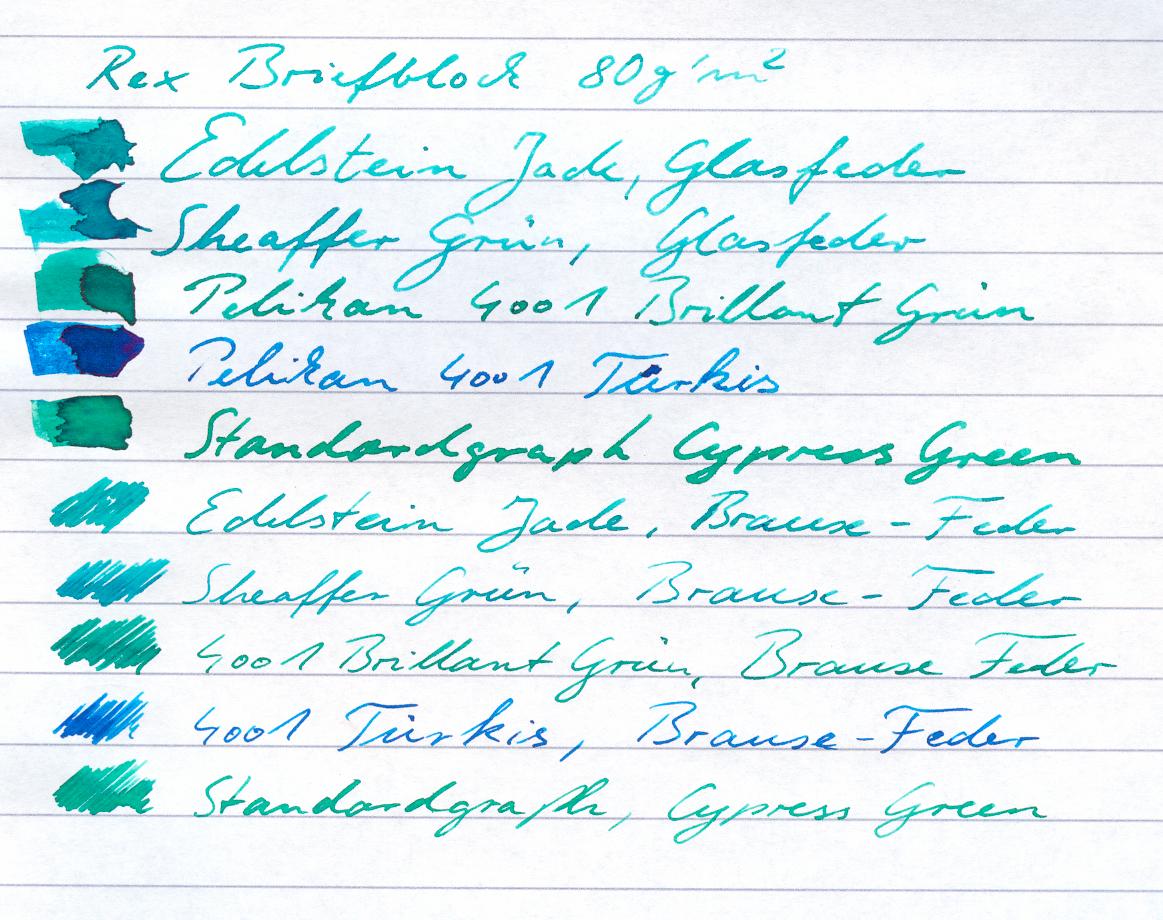 Rex Briefblock 80g/m²
Edelstein Jade, Glasfeder
Sheaffer Grün, Glasfeder
Pelikan 4001 Brillant Grün
Pelikan 4001 Türkis
Standardgraph Cypress Green
Edelstein Jade, Brause-Feder
Sheaffer Grün, Brause-Feder
4001 Brillant Grün, Brause Feder
4001 Türkis, Brause-Feder
Standardgraph, Cypress Green